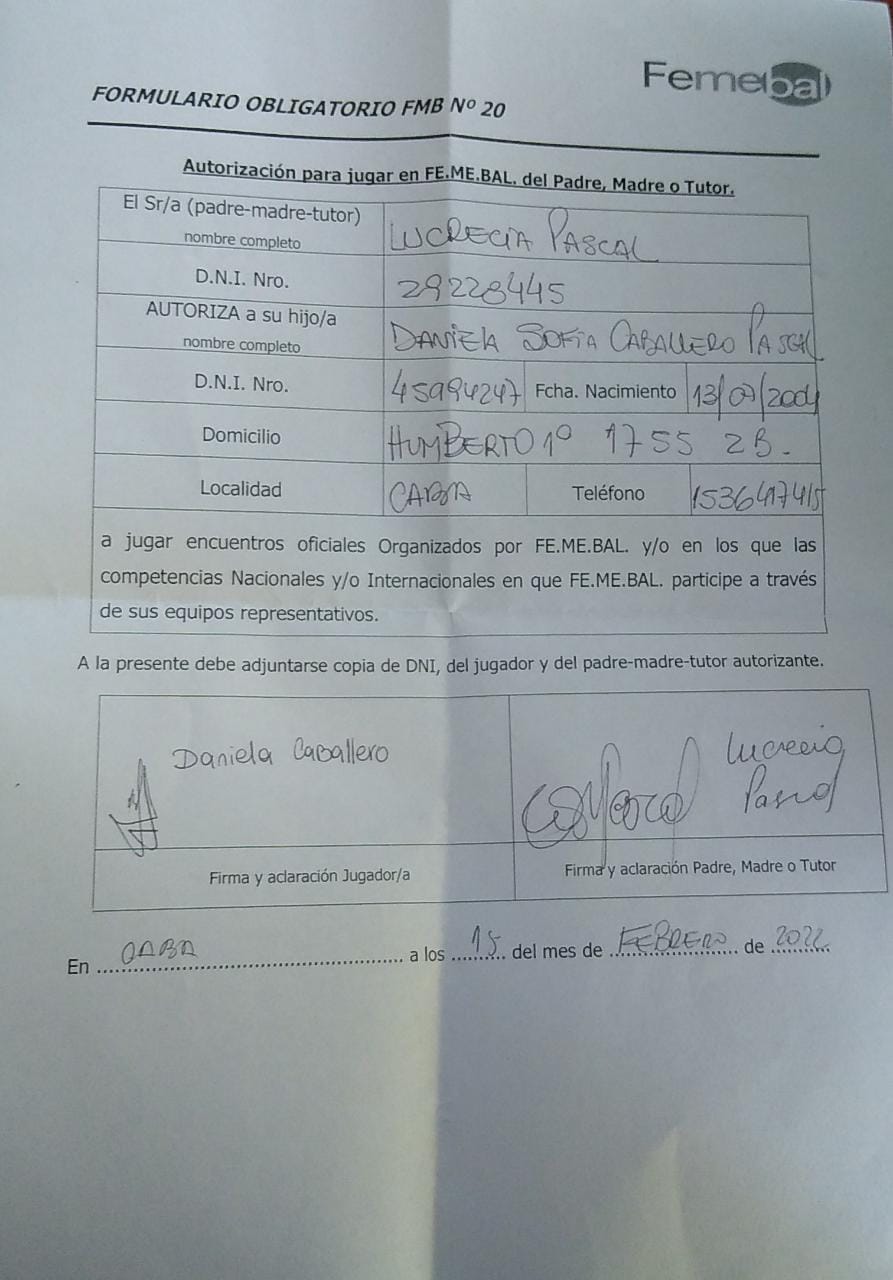 Femebal
FORMULARIO OBLIGATORIO FMB Nº 20
Autorización para jugar en FE.ME.BAL. del Padre, Madre o Tutor.
El Sr/a (padre-madre-tutor)
nombre completo
LUCRECIA PASCAL
D.N.I. Nro. 29228445
AUTORIZA a su hijo/a
nombre completo
DANIELA SOFIA CABALLERO PASCAL
D.N.I. Nro. 45994247 Fcha. Nacimiento 13/07/2004
Domicilio HUMBERTO 1º 1755 2B.
Localidad CABA Teléfono 1536417415
a jugar encuentros oficiales Organizados por FE.ME.BAL. y/o en los que las
competencias Nacionales y/o Internacionales en que FE.ME.BAL. participe a través
de sus equipos representativos.
A la presente debe adjuntarse copia de DNI, del jugador y del padre-madre-tutor autorizante.
Daniela Caballero
Lucrecia
Pascal
Firma y aclaración Jugador/a
Firma y aclaración Padre, Madre o Tutor
En CABA a los 15 del mes de FEBRERO de 2022